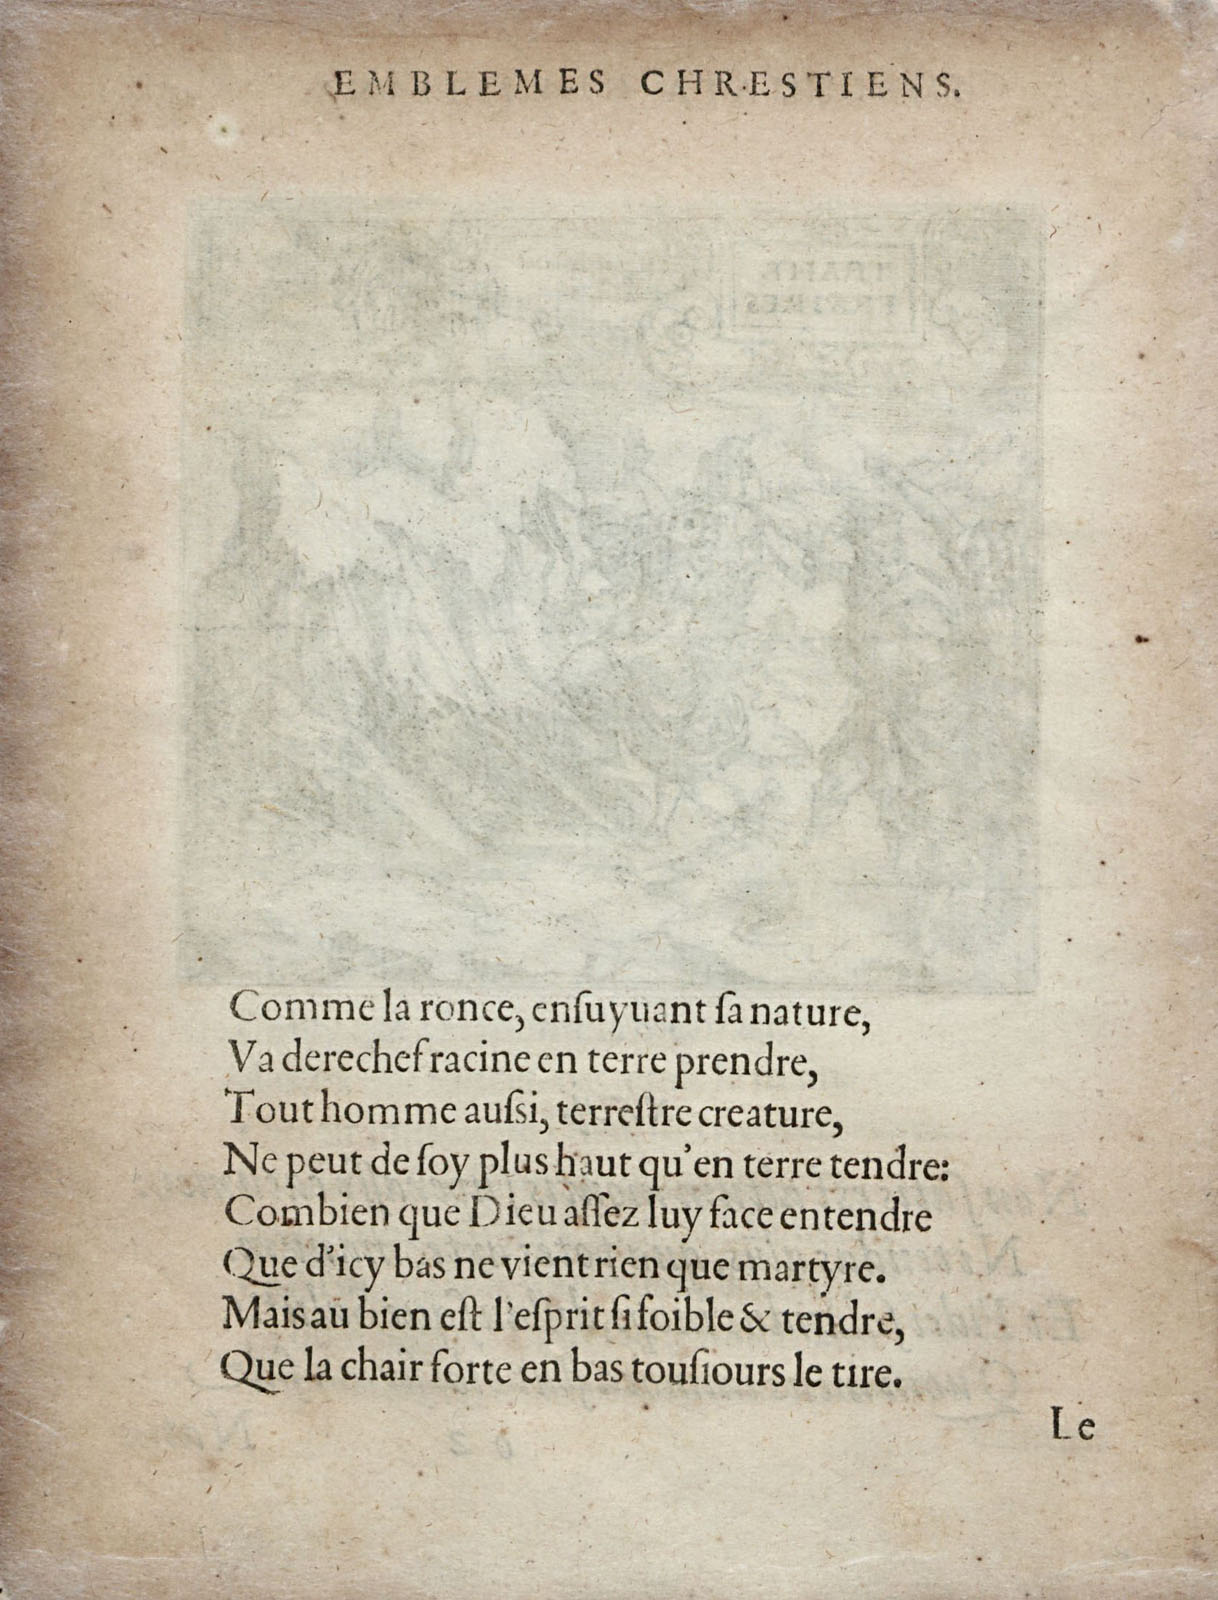 EMBLEMES CHRESTIENS.
Comme la ronce, enſuyuant ſa nature,
Va derechef racine en terre prendre,
Tout homme auſsi, terreſtre creature,
Ne peut de ſoy plus haut qu'en terre tendre:
Combien que Dieu aſſez luy face entendre
Que d'icy bas ne vient rien que martyre.
Mais au bien eſt l'eſprit ſi foible & tendre,
Que la chair forte en bas touſiours le tire.
Le